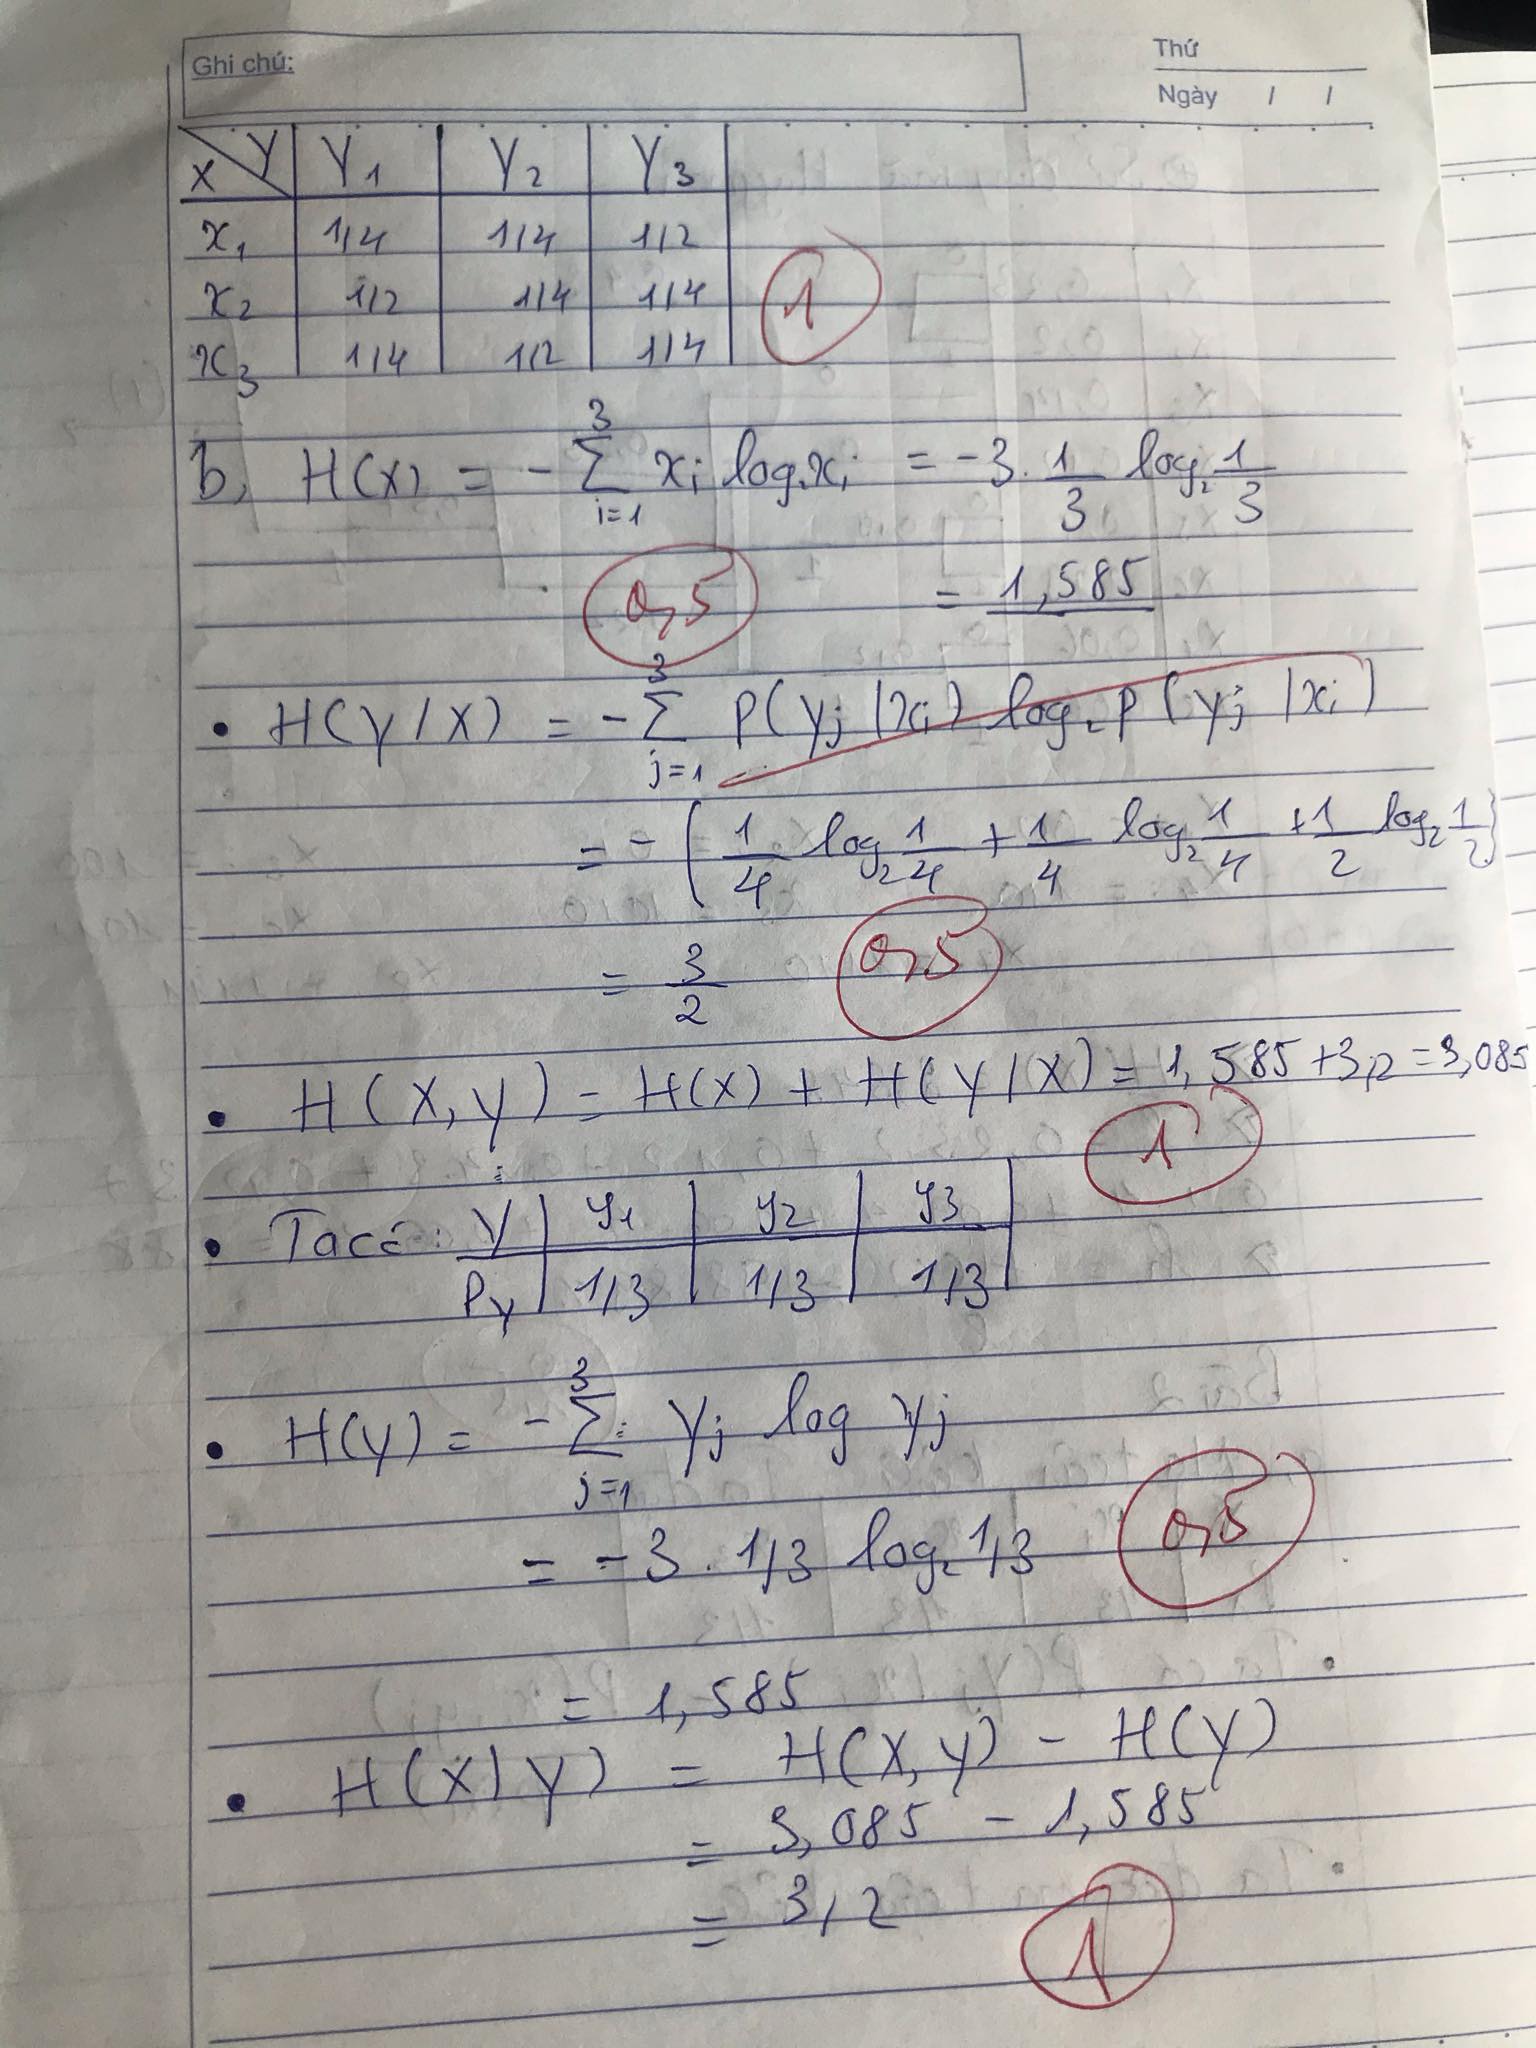 Ghi chú:
Thứ
Ngày / /
X Y Y1 Y2 Y3
x1 1/4 1/4 1/2
x2 1/2 1/4 1/4
x3 1/4 1/2 1/4
1
b, H(X) = - 3 Σ i=1 xi log2 xi = -3. 1/3 log2 1/3
= 1,585
0,5
• H(Y/X) = - 3 Σ j=1 P(yj/xi) log2 P(yj/xi)
= - ( 1/4 log2 1/4 + 1/4 log2 1/4 + 1/2 log2 1/2 )
= 3/2
0,5
• H(X,Y) = H(X) + H(Y/X) = 1,585 + 3/2 = 3,085
1
• Ta có: Y y1 y2 y3
PY 1/3 1/3 1/3
• H(Y) = - 3 Σ j=1 Yj log Yj
= -3. 1/3 log2 1/3
0,5
= 1,585
• H(X/Y) = H(X,Y) - H(Y)
= 3,085 - 1,585
= 3/2
1